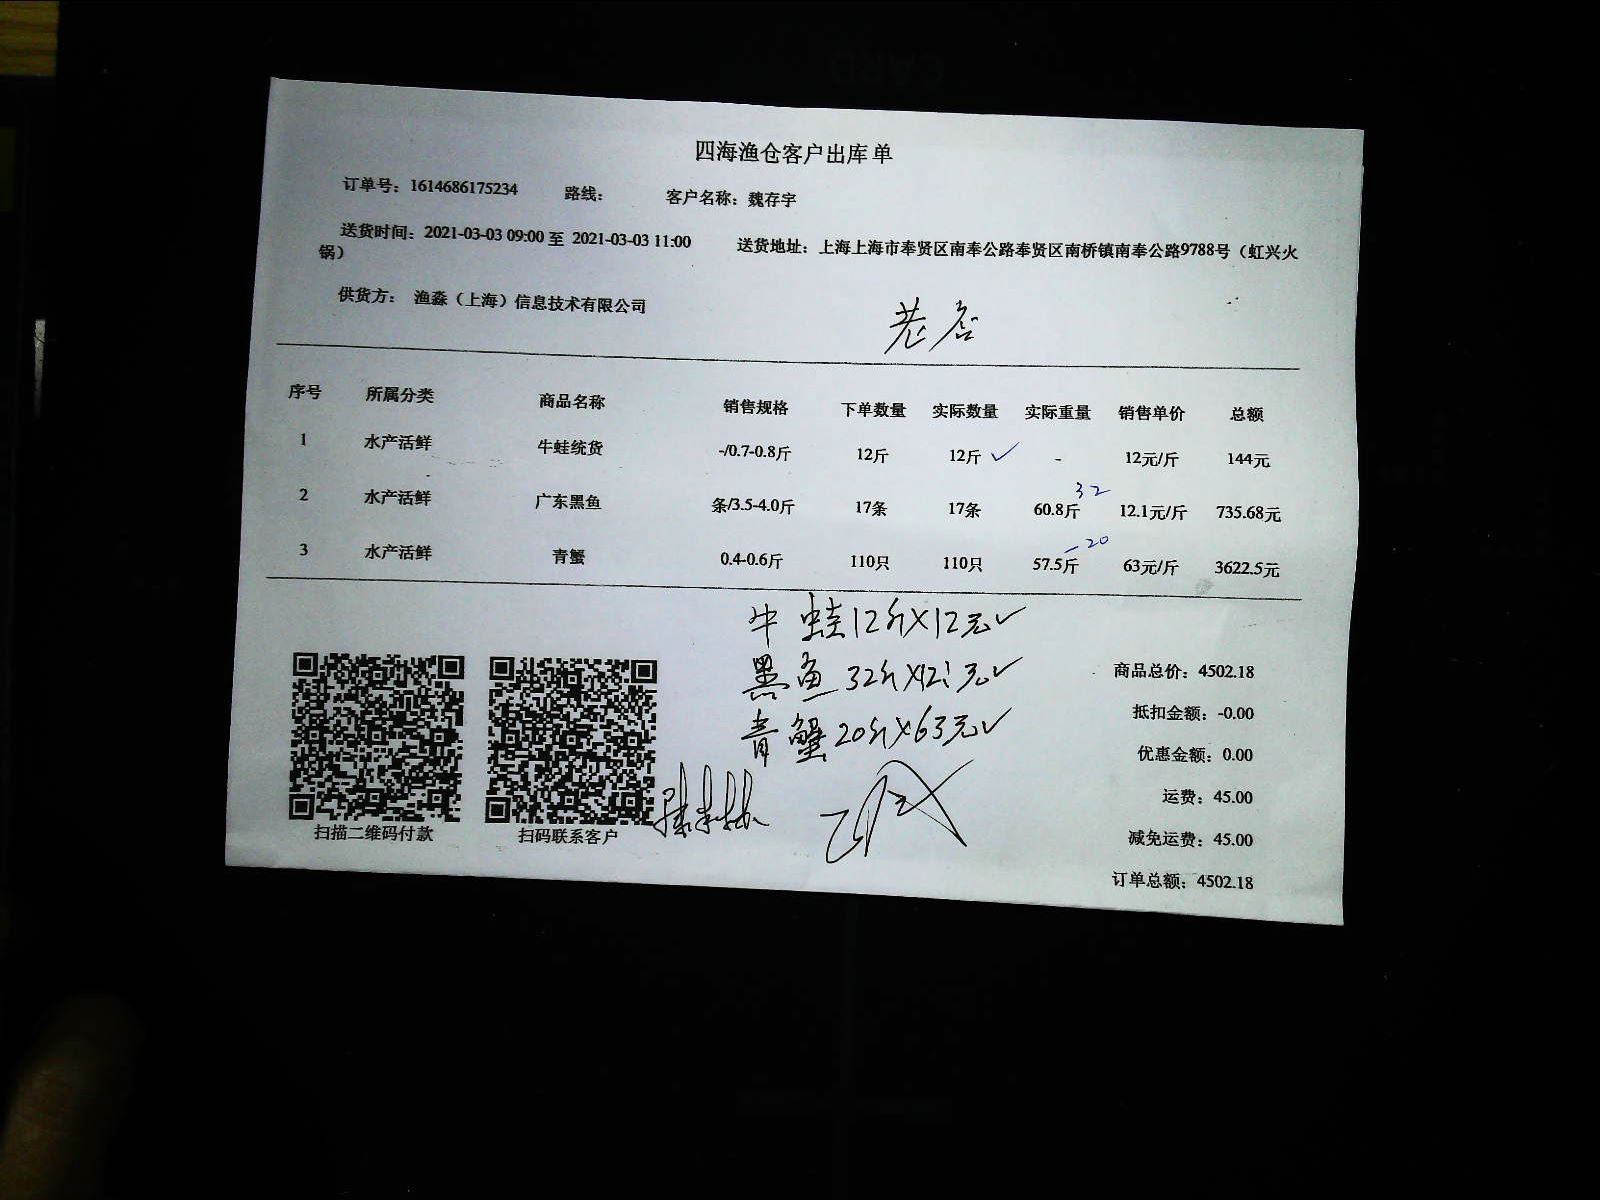 四海渔仓客户出库单
订单号：1614686175234 路线： 客户名称：魏存宇
送货时间：2021-03-03 09:00 至 2021-03-03 11:00 送货地址：上海上海市奉贤区南奉公路奉贤区南桥镇南奉公路9788号（虹兴火
锅）
供货方： 渔淼（上海）信息技术有限公司
序号 所属分类 商品名称 销售规格 下单数量 实际数量 实际重量 销售单价 总额
1 水产活鲜 牛蛙统货 -/0.7-0.8斤 12斤 12斤 ✓ - 12元/斤 144元
32
2 水产活鲜 广东黑鱼 条/3.5-4.0斤 17条 17条 60.8斤 12.1元/斤 735.68元
-20
3 水产活鲜 青蟹 0.4-0.6斤 110只 110只 57.5斤 63元/斤 3622.5元
牛蛙12斤X12元✓
黑鱼32斤X12.1元✓
青蟹20斤X63元✓
商品总价：4502.18
抵扣金额：-0.00
优惠金额：0.00
运费：45.00
减免运费：45.00
订单总额：4502.18
扫描二维码付款 扫码联系客户